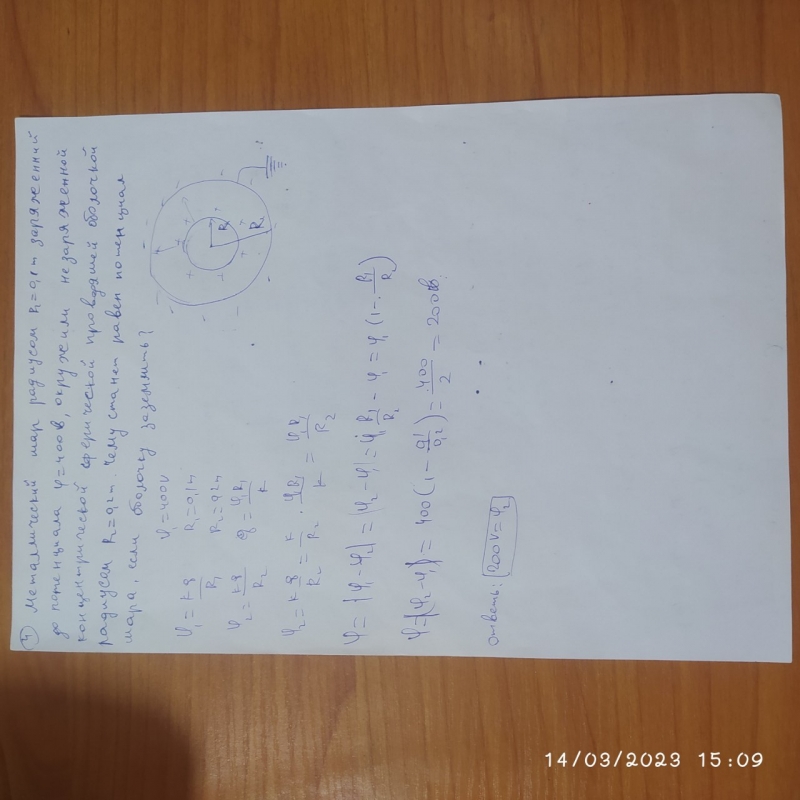 4 Металлический шар радиусом R₁=0,1m заряженний
до потенциала φ=400в, окружили незаряженной
концентрической сферической проводящей оболочкой
радиусом R₂=0,2m. Чему станет равен потенциал
шара, если оболочку заземлить?
φ₁ = kq/R₁ φ₁=400V
R₁=0,1m
φ₂ = kq/R₂ R₂=0,2m
q = φ₁R₁/k
φ₂ = k q/R₂ = k/R₂ · φR₁/k = φR₁/R₂
φ = |φ₁-φ₂| = |φ₂-φ₁| = φ₁ R₁/R₂ - φ₁ = φ₁(1-R₁/R₂)
φ=|φ₂-φ₁| = 400(1-0,1/0,2) = 400/2 = 200в.
ответь: 200V=φ₂
R₁
R₂
14/03/2023 15:09